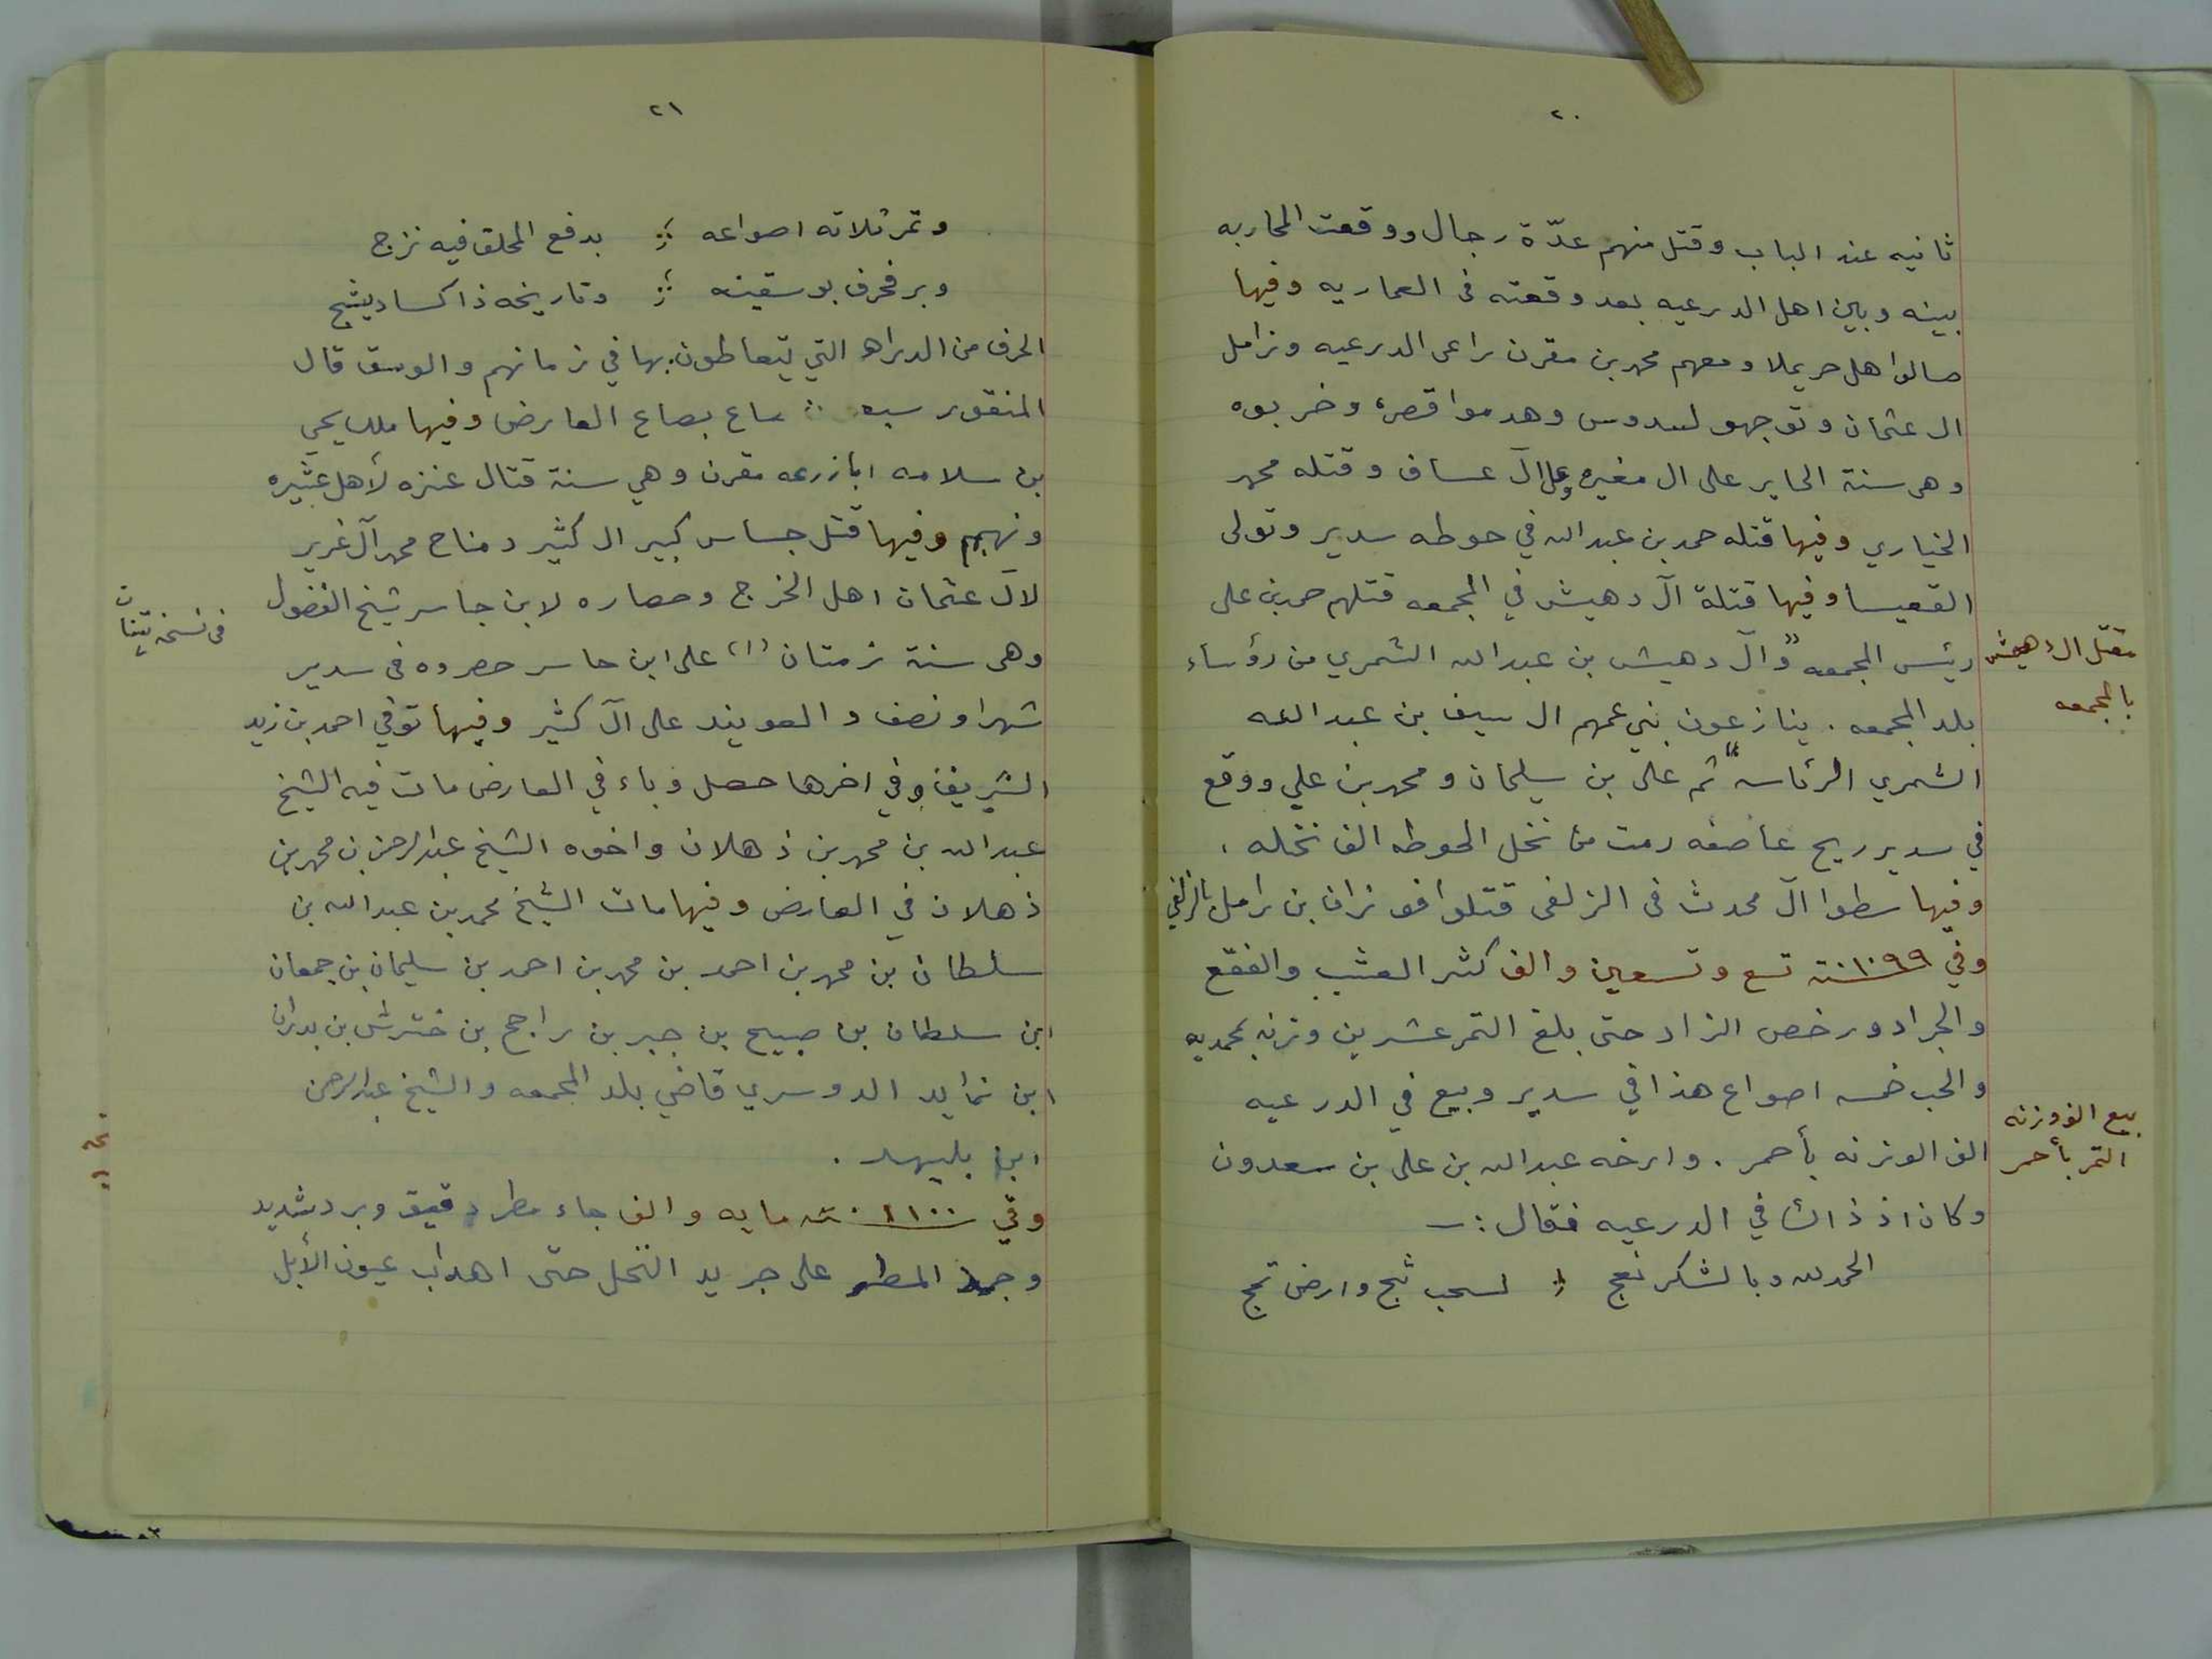 ٢٠
ثانيه عند الباب وقتل منهم عدّة رجال ووقعت المحاربه
بينه وبين اهل الدرعيه بعد وقعته فى العماريه وفيها
صالوا هل حريملا ومعهم محمد بن مقرن راعى الدرعيه وزامل
ال عثمان وتوجهو لسدوس وهدموا قصره وخربوه
وهى سنة الحاير على ال مغيره وعلى آل عساف وقتله محمد
الخياري وفيها قتله حمد بن عبدالله في حوطه سدير وتولى
القعيسا وفيها قتلة آل دهيش في المجمعه قتلهم حمد بن على
رئيس المجمعه "وآل دهيش بن عبدالله الشمري من رؤساء
بلد المجمعه . ينازعون بني عمهم ال سيف بن عبدالله
الشمري الرئاسه" ثم على بن سليمان ومحمد بن علي ووقع
في سدير ريح عاصفه رمت من نخل الحوطه الف نخله .
وفيها سطوا آل محدث فى الزلفى قتلوا فوزان بن زامل بالزلفي
وفي ١٠٩٩ سنة تسع وتسعين والف كثر العشب والفقع
والجراد ورخص الزاد حتى بلغ التمر عشرين وزنه بمحمديه
والحب خمسه اصواع هذا في سدير وبيع في الدرعيه
الف الوزنه بأحمر . وارخه عبدالله بن على بن سعدون
وكان اذ ذاك في الدرعيه فقال :ـ
الحمد لله وبالشكر نعج ؛ لسحب ثج وارض تج
مقتل ال دهيش
بالمجمعه
بيع الف وزنه
التمر بأحمر
٢١
وتمر ثلاثه اصواعه ؛ بدفع المحلق فيه نزج
وبر فحرف بوسقينه ؛ وتاريخه ذا كساد يثج
الحرف من الدراهم التي يتعاطون بها في زمانهم والوسق قال
المنقور ساع بصاع العارض وفيها ملك يحي
بن سلامه ابا زرعه مقرن وهي سنة قتال عنزه لأهل عشيره
ونهبهم وفيها قتل جساس كبير ال كثير ومناح محمد آل غرير
لآل عثمان اهل الخرج وحصاره لابن جاسر شيخ الفضول
وهى سنة زمتان (١) على ابن جاسر حصروه فى سدير
شهرا ونصف والعويند على آل كثير وفيها توفي احمد بن زيد
الشريف وفي اخرها حصل وباء في العارض مات فيه الشيخ
عبدالله بن محمد بن ذهلان واخوه الشيخ عبدالرحمن بن محمد بن
ذهلان في العارض وفيها مات الشيخ محمد بن عبدالله بن
سلطان بن محمد بن احمد بن محمد بن احمد بن سليمان بن جمعان
ابن سلطان بن صبيح بن جبر بن راجح بن خترش بن بدران
ابن زايد الدوسري قاضي بلد المجمعه والشيخ عبدالرحمن
ابن بليهد .
وفي ١١٠٠ سنة مايه والف جاء مطر دقيق وبرد شديد
وجمد المطر على جريد النخل حتى اهداب عيون الأبل
فى نسخه